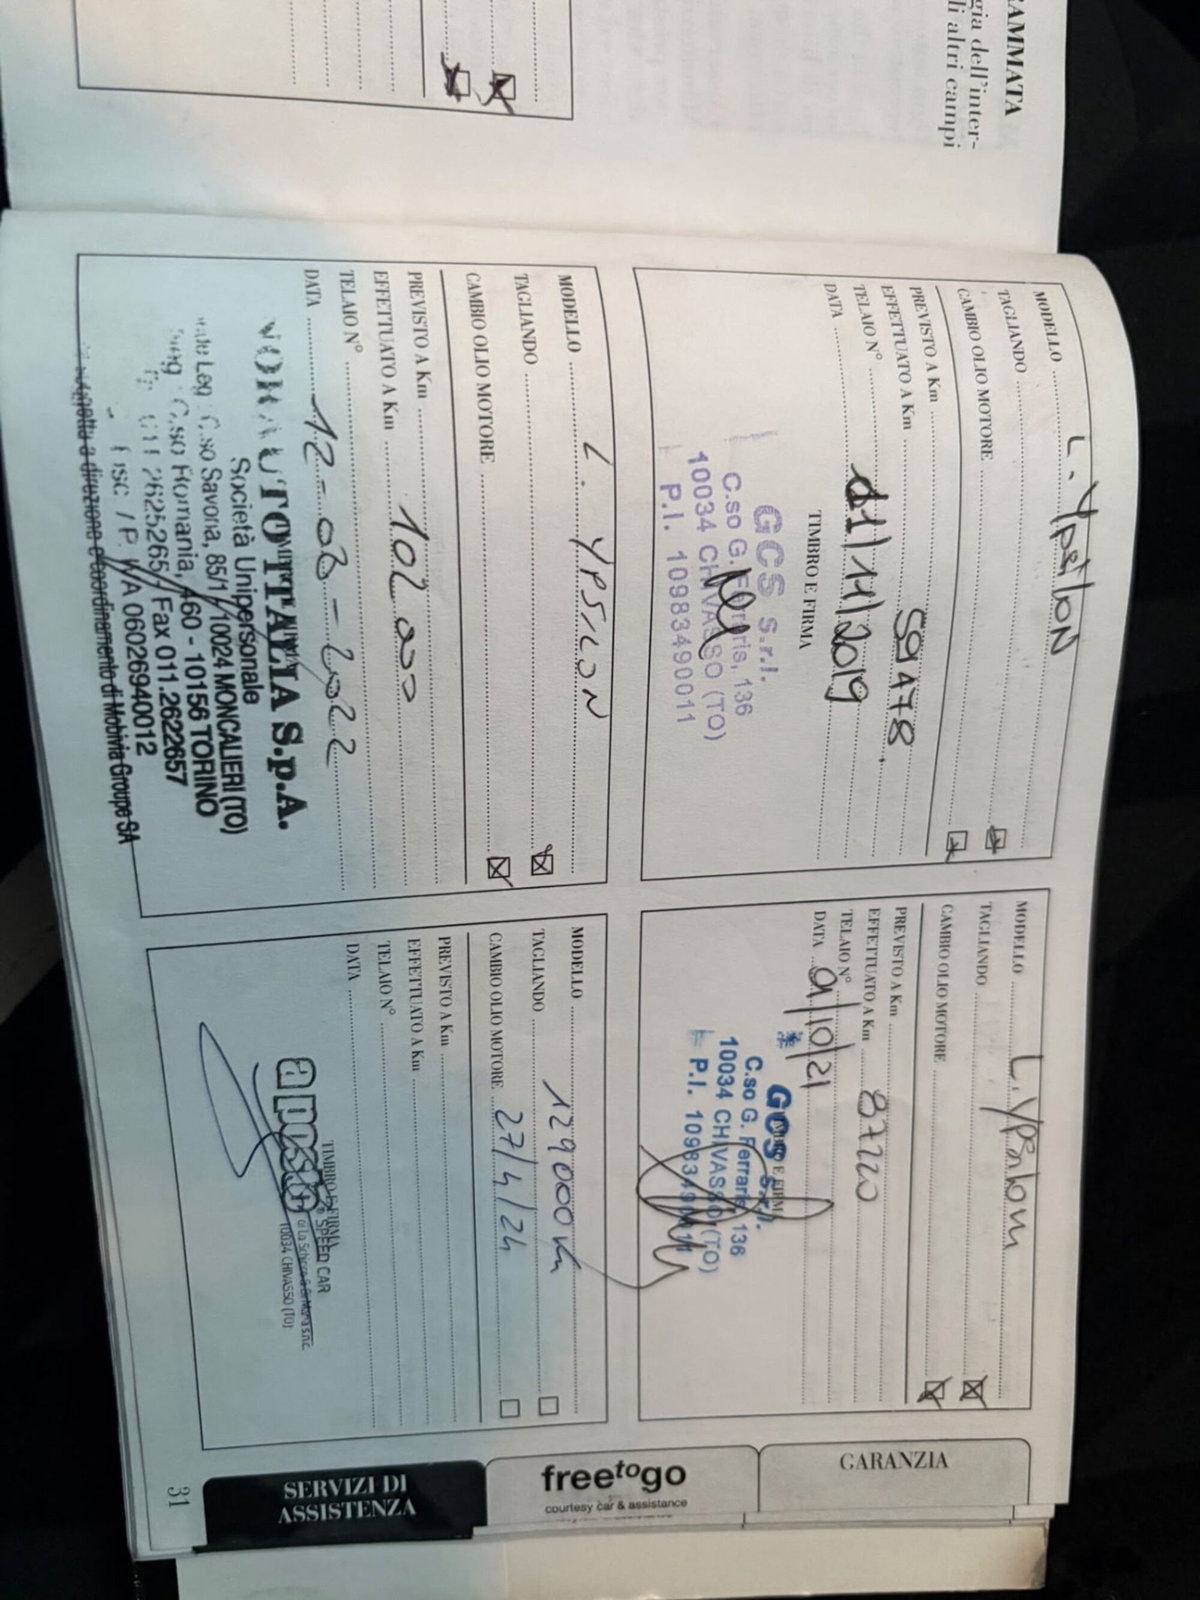 AMMATA
gia dell'inter-
li altri campi
MODELLO L. Ypsilon
TAGLIANDO
CAMBIO OLIO MOTORE
PREVISTO A Km
EFFETTUATO A Km 59478
TELAIO N°
DATA 01/11/2019
TIMBRO E FIRMA
GCS s.r.l.
C.so G. Ferraris, 136
10034 CHIVASSO (TO)
P.I. 10983490011
MODELLO L. Ypsilon
TAGLIANDO
CAMBIO OLIO MOTORE
PREVISTO A Km
EFFETTUATO A Km 87220
TELAIO N°
DATA 9/10/21
GCS s.r.l.
C.so G. Ferraris, 136
10034 CHIVASSO (TO)
P.I. 10983490011
MODELLO L. YPSILON
TAGLIANDO
CAMBIO OLIO MOTORE
PREVISTO A Km
EFFETTUATO A Km 102.000
TELAIO N°
DATA 12-08-2022
NORAUTO ITALIA S.p.A.
Società Unipersonale
Leg. C.so Savona, 85/1 10024 MONCALIERI (TO)
C.so Romania, 460 - 10156 TORINO
011 2625265 Fax 011.2622657
Fisc. / P. IVA 06026940012
soggetta a direzione e coordinamento di Mobivia Groupe SA
MODELLO
TAGLIANDO 129000 Km
CAMBIO OLIO MOTORE 27/4/24
PREVISTO A Km
EFFETTUATO A Km
TELAIO N°
DATA
TIMBRO E FIRMA
a posto
SPEED CAR
10034 CHIVASSO (TO)
GARANZIA
freetogo
courtesy car & assistance
SERVIZI DI
ASSISTENZA
31